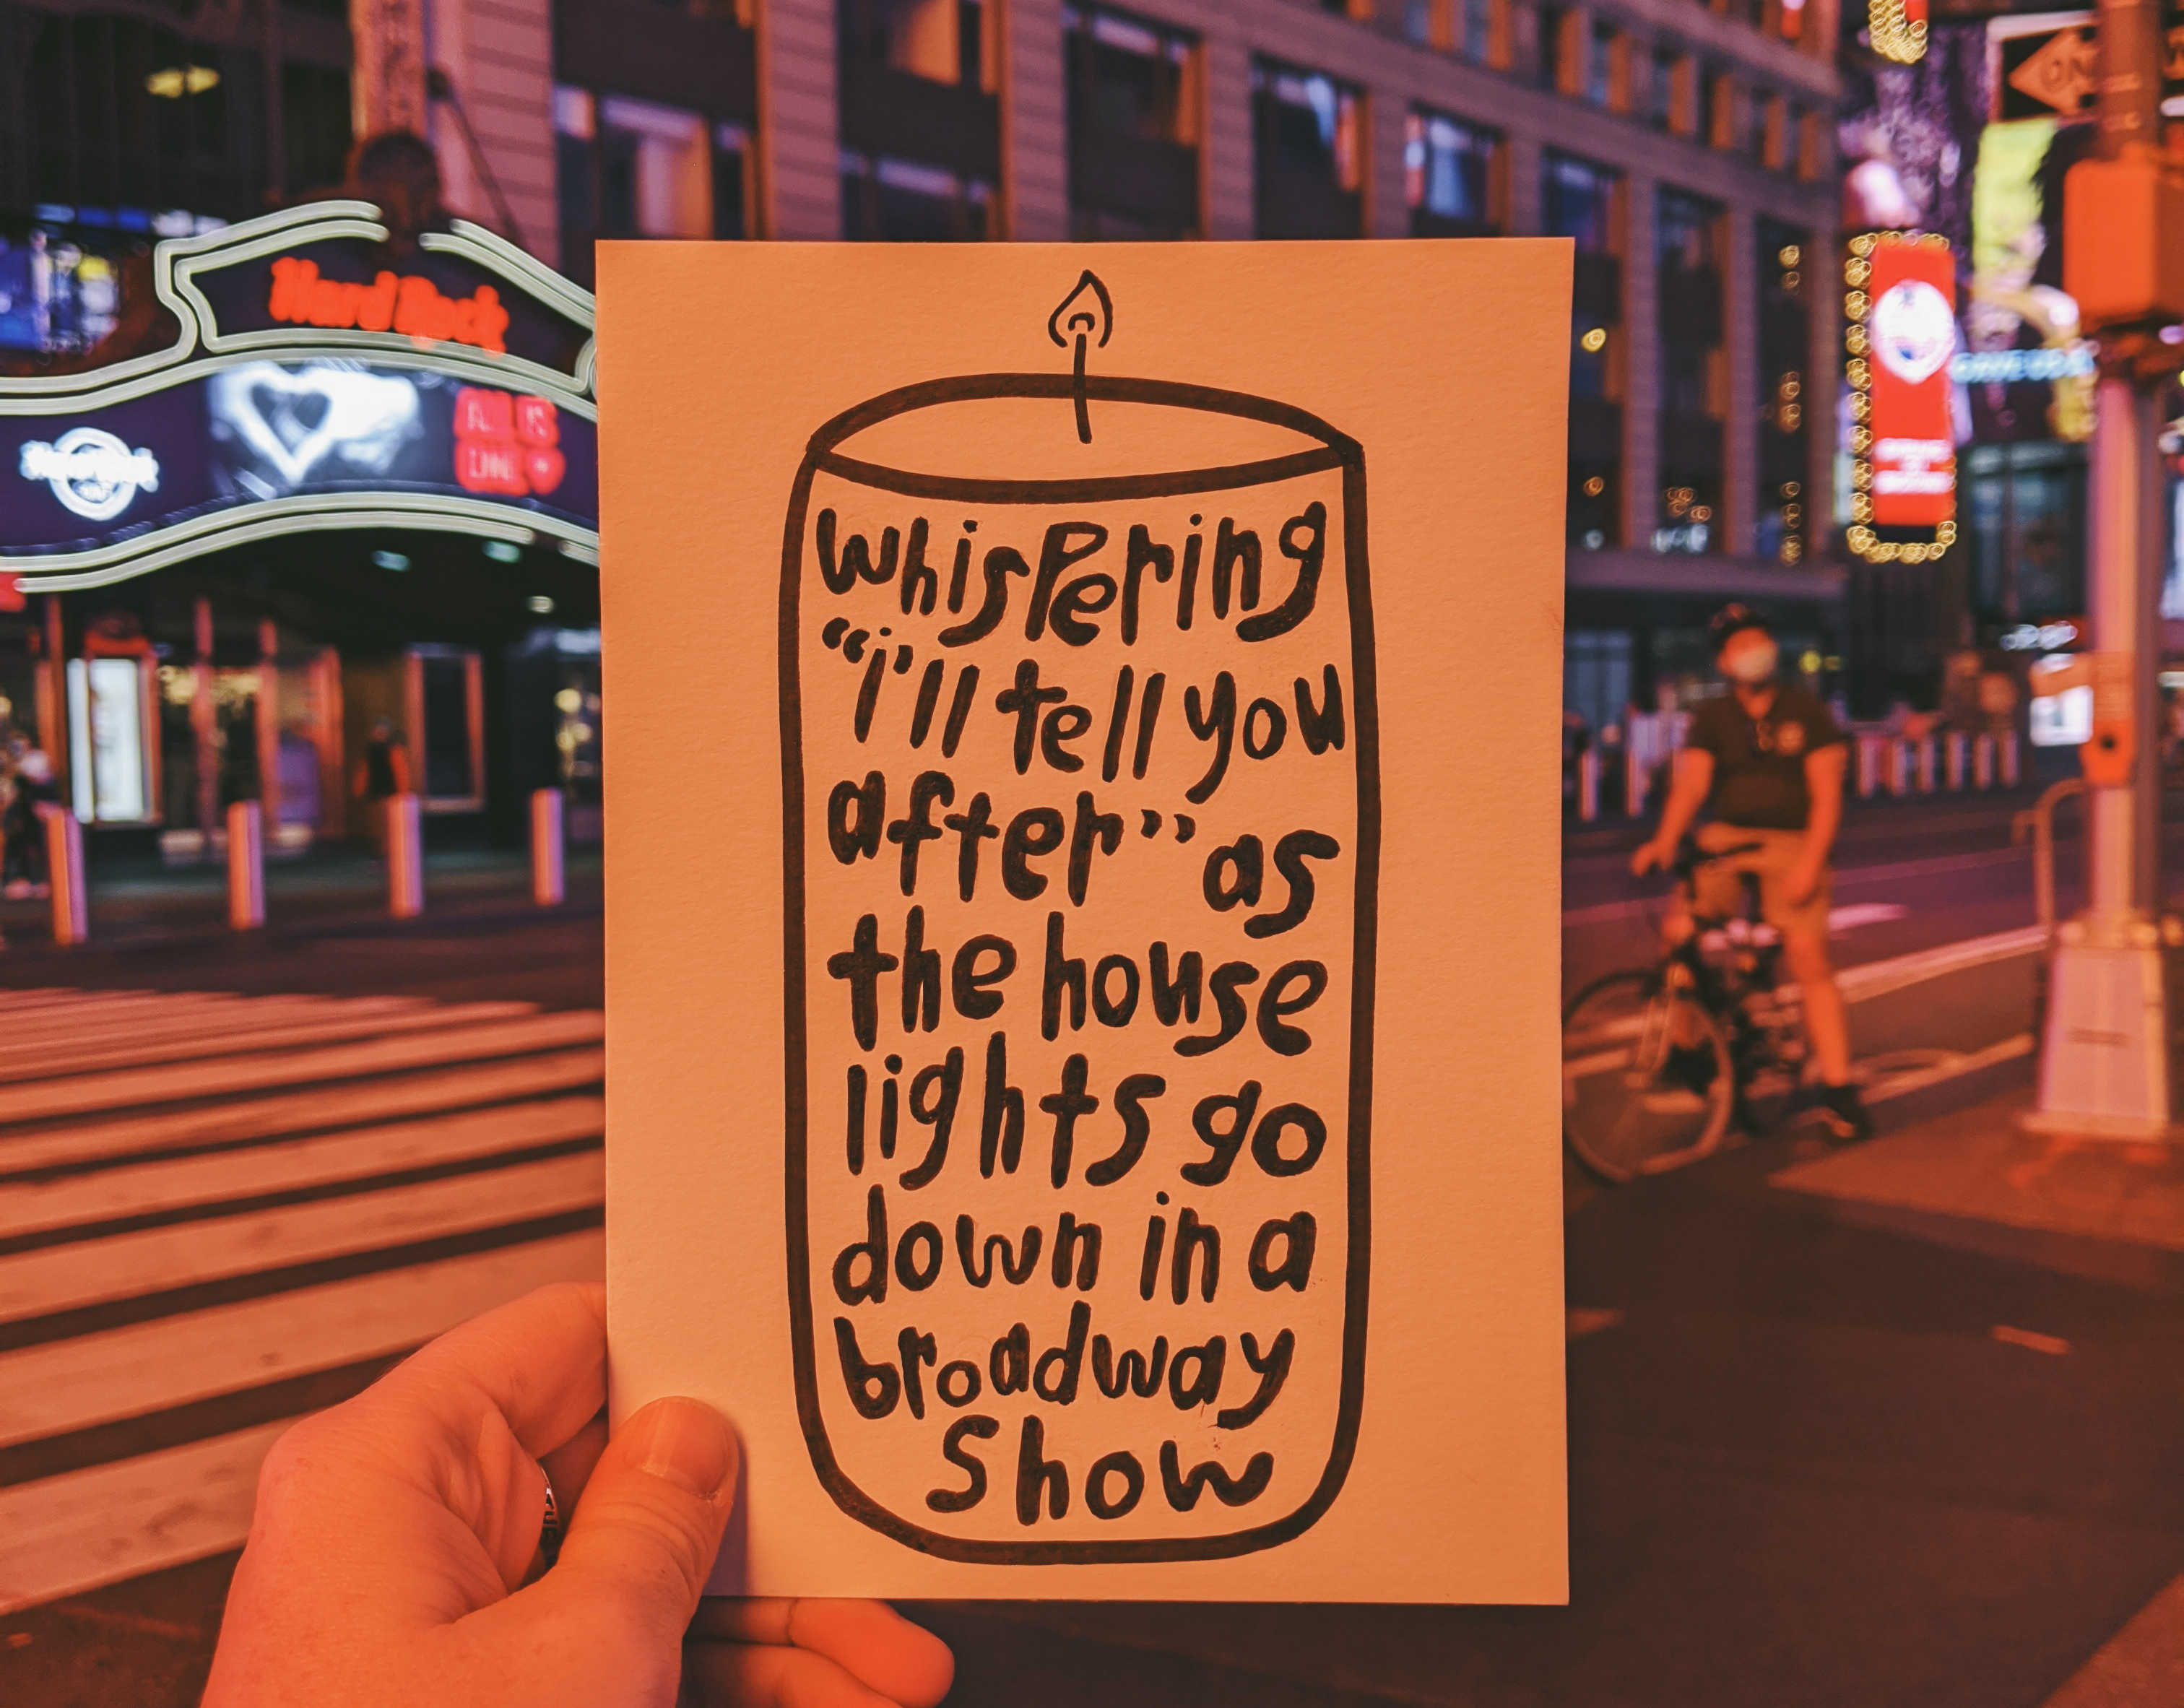 Hard Rock
ALL IS
ONE
whispering
“i'll tell you
after” as
the house
lights go
down in a
broadway
show